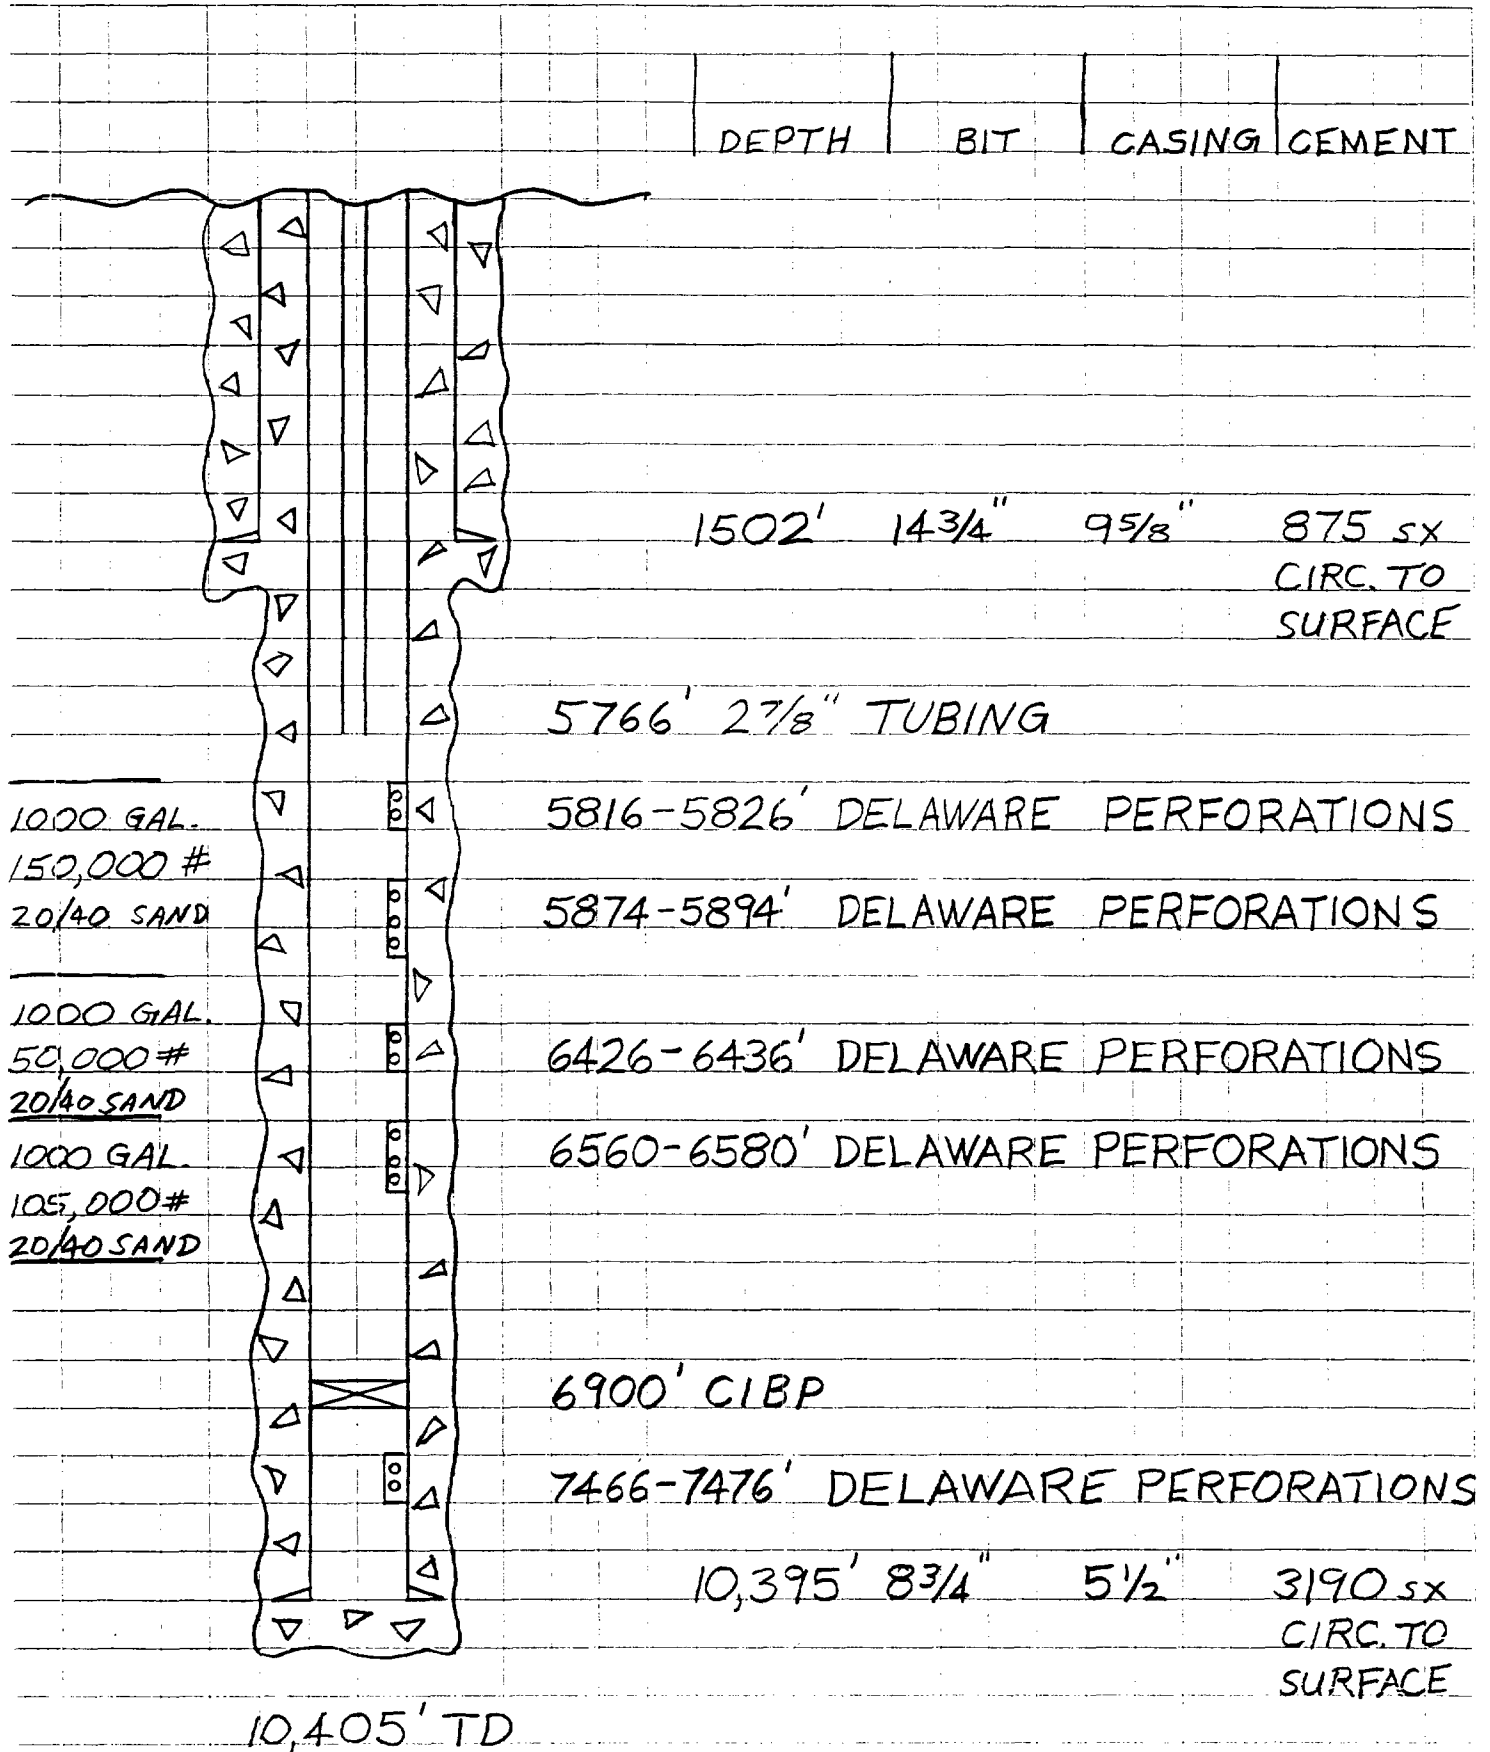 DEPTH BIT CASING CEMENT
1502' 14 3/4" 9 5/8" 875 SX
CIRC. TO
SURFACE
5766' 2 7/8" TUBING
5816-5826' DELAWARE PERFORATIONS
1000 GAL.
150,000 #
20/40 SAND
5874-5894' DELAWARE PERFORATIONS
1000 GAL.
50,000 #
20/40 SAND
6426-6436' DELAWARE PERFORATIONS
1000 GAL.
105,000 #
20/40 SAND
6560-6580' DELAWARE PERFORATIONS
6900' CIBP
7466-7476' DELAWARE PERFORATIONS
10,395' 8 3/4" 5 1/2" 3190 SX
CIRC. TO
SURFACE
10,405' TD